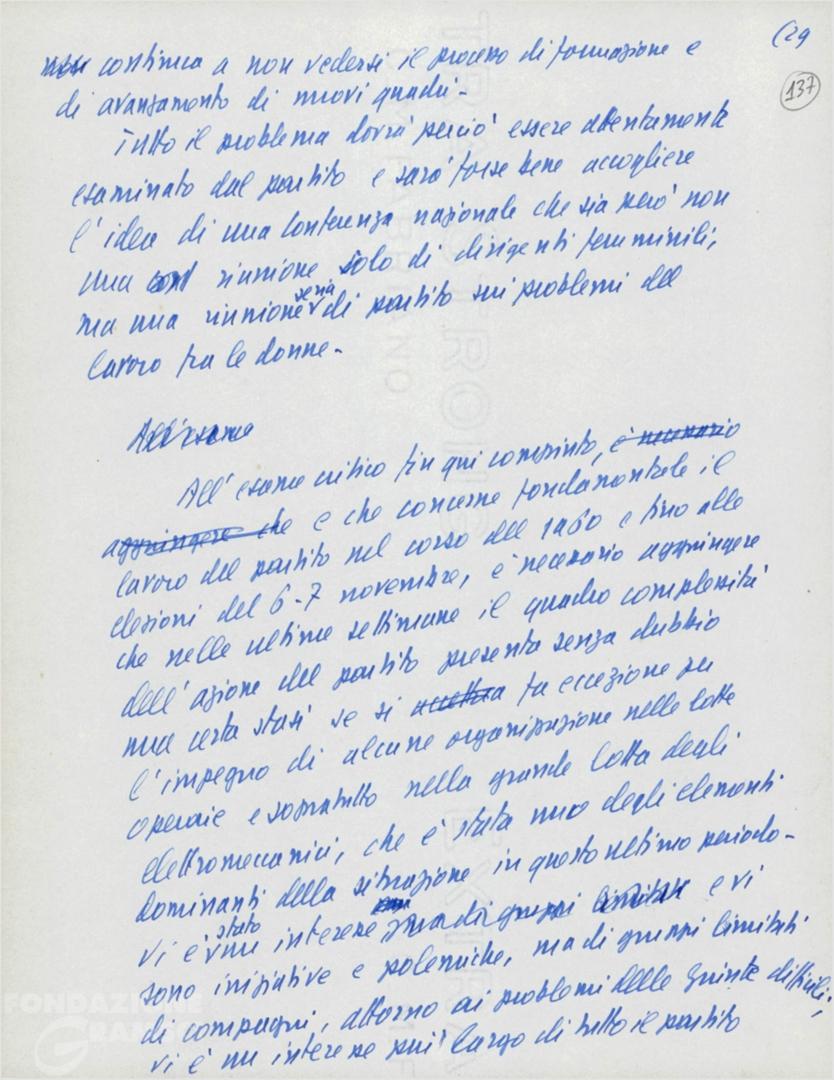 (29
137
non continua a non vedersi il processo di formazione e
di avanzamento di nuovi quadri.
Tutto il problema dovrà perciò essere attentamente
esaminato dal partito e sarà forse bene accogliere
l'idea di una Conferenza nazionale che sia però non
una conf riunione solo di dirigenti femminili,
ma una riunione seria di partito sui problemi del
lavoro tra le donne.
All'esame
All'esame critico fin qui compiuto, è necessario
aggiungere che e che concerne fondamentale il
lavoro del partito nel corso del 1960 e fino alle
elezioni del 6-7 novembre, è necessario aggiungere
che nelle ultime settimane il quadro complessità
dell'azione del partito presenta senza dubbio
una certa stasi se si accetta fa eccezione per
l'impegno di alcune organizzazione nelle lotte
operaie e sopratutto nella grande lotta degli
elettromeccanici, che è stata uno degli elementi
dominanti della situazione in questo ultimo periodo.
vi è stato un interesse ma di gruppi limitati e vi
sono iniziative e polemiche, ma di gruppi limitati
di compagni, attorno ai problemi delle Giunte difficili,
vi è un interesse più largo di tutto il partito
FONDAZIONE
GRAMSCI